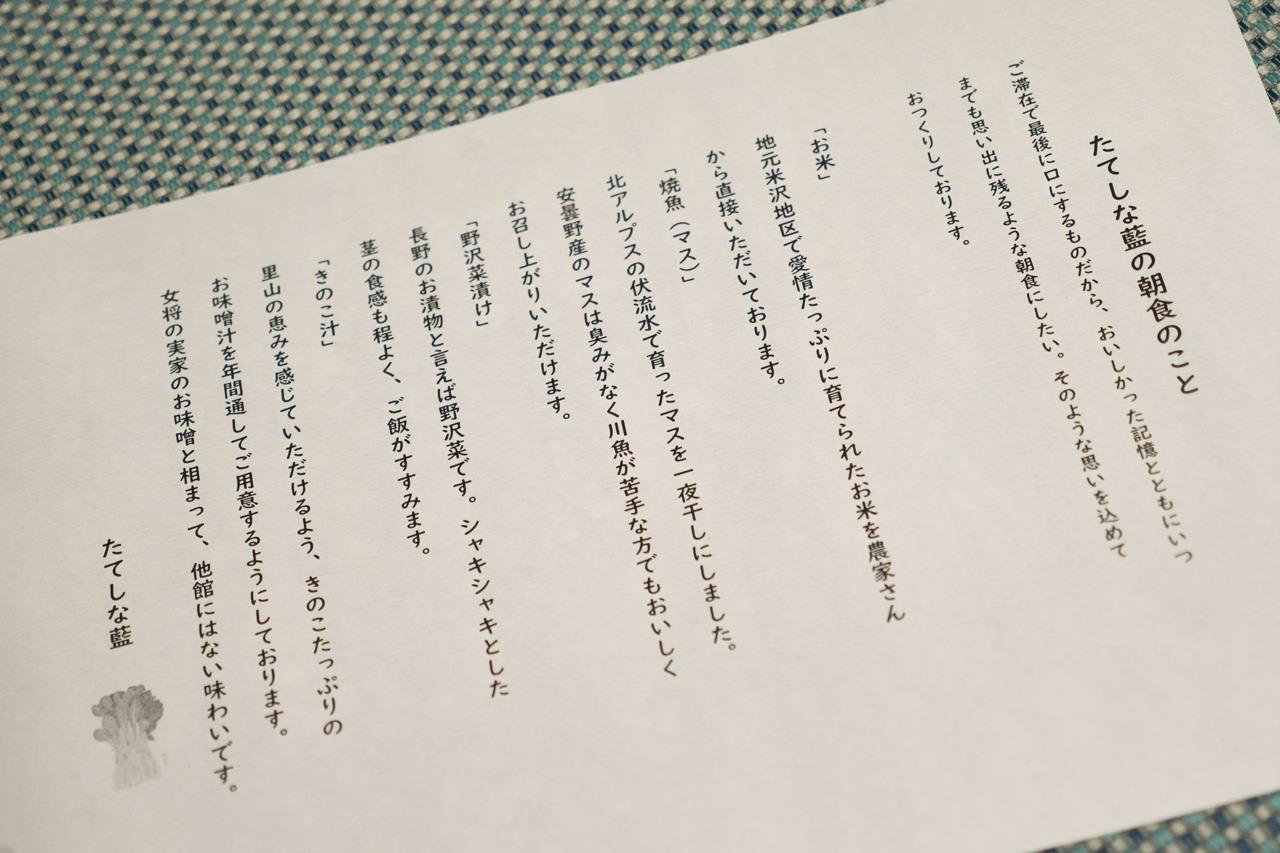 たてしな藍の朝食のこと
ご滞在で最後に口にするものだから、おいしかった記憶とともにいつ
までも思い出に残るような朝食にしたい。そのような思いを込めて
おつくりしております。
「お米」
地元米沢地区で愛情たっぷりに育てられたお米を農家さん
から直接いただいております。
「焼魚（マス）」
北アルプスの伏流水で育ったマスを一夜干しにしました。
安曇野産のマスは臭みがなく川魚が苦手な方でもおいしく
お召し上がりいただけます。
「野沢菜漬け」
長野のお漬物と言えば野沢菜です。シャキシャキとした
茎の食感も程よく、ご飯がすすみます。
「きのこ汁」
里山の恵みを感じていただけるよう、きのこたっぷりの
お味噌汁を年間通してご用意するようにしております。
女将の実家のお味噌と相まって、他館にはない味わいです。
たてしな藍